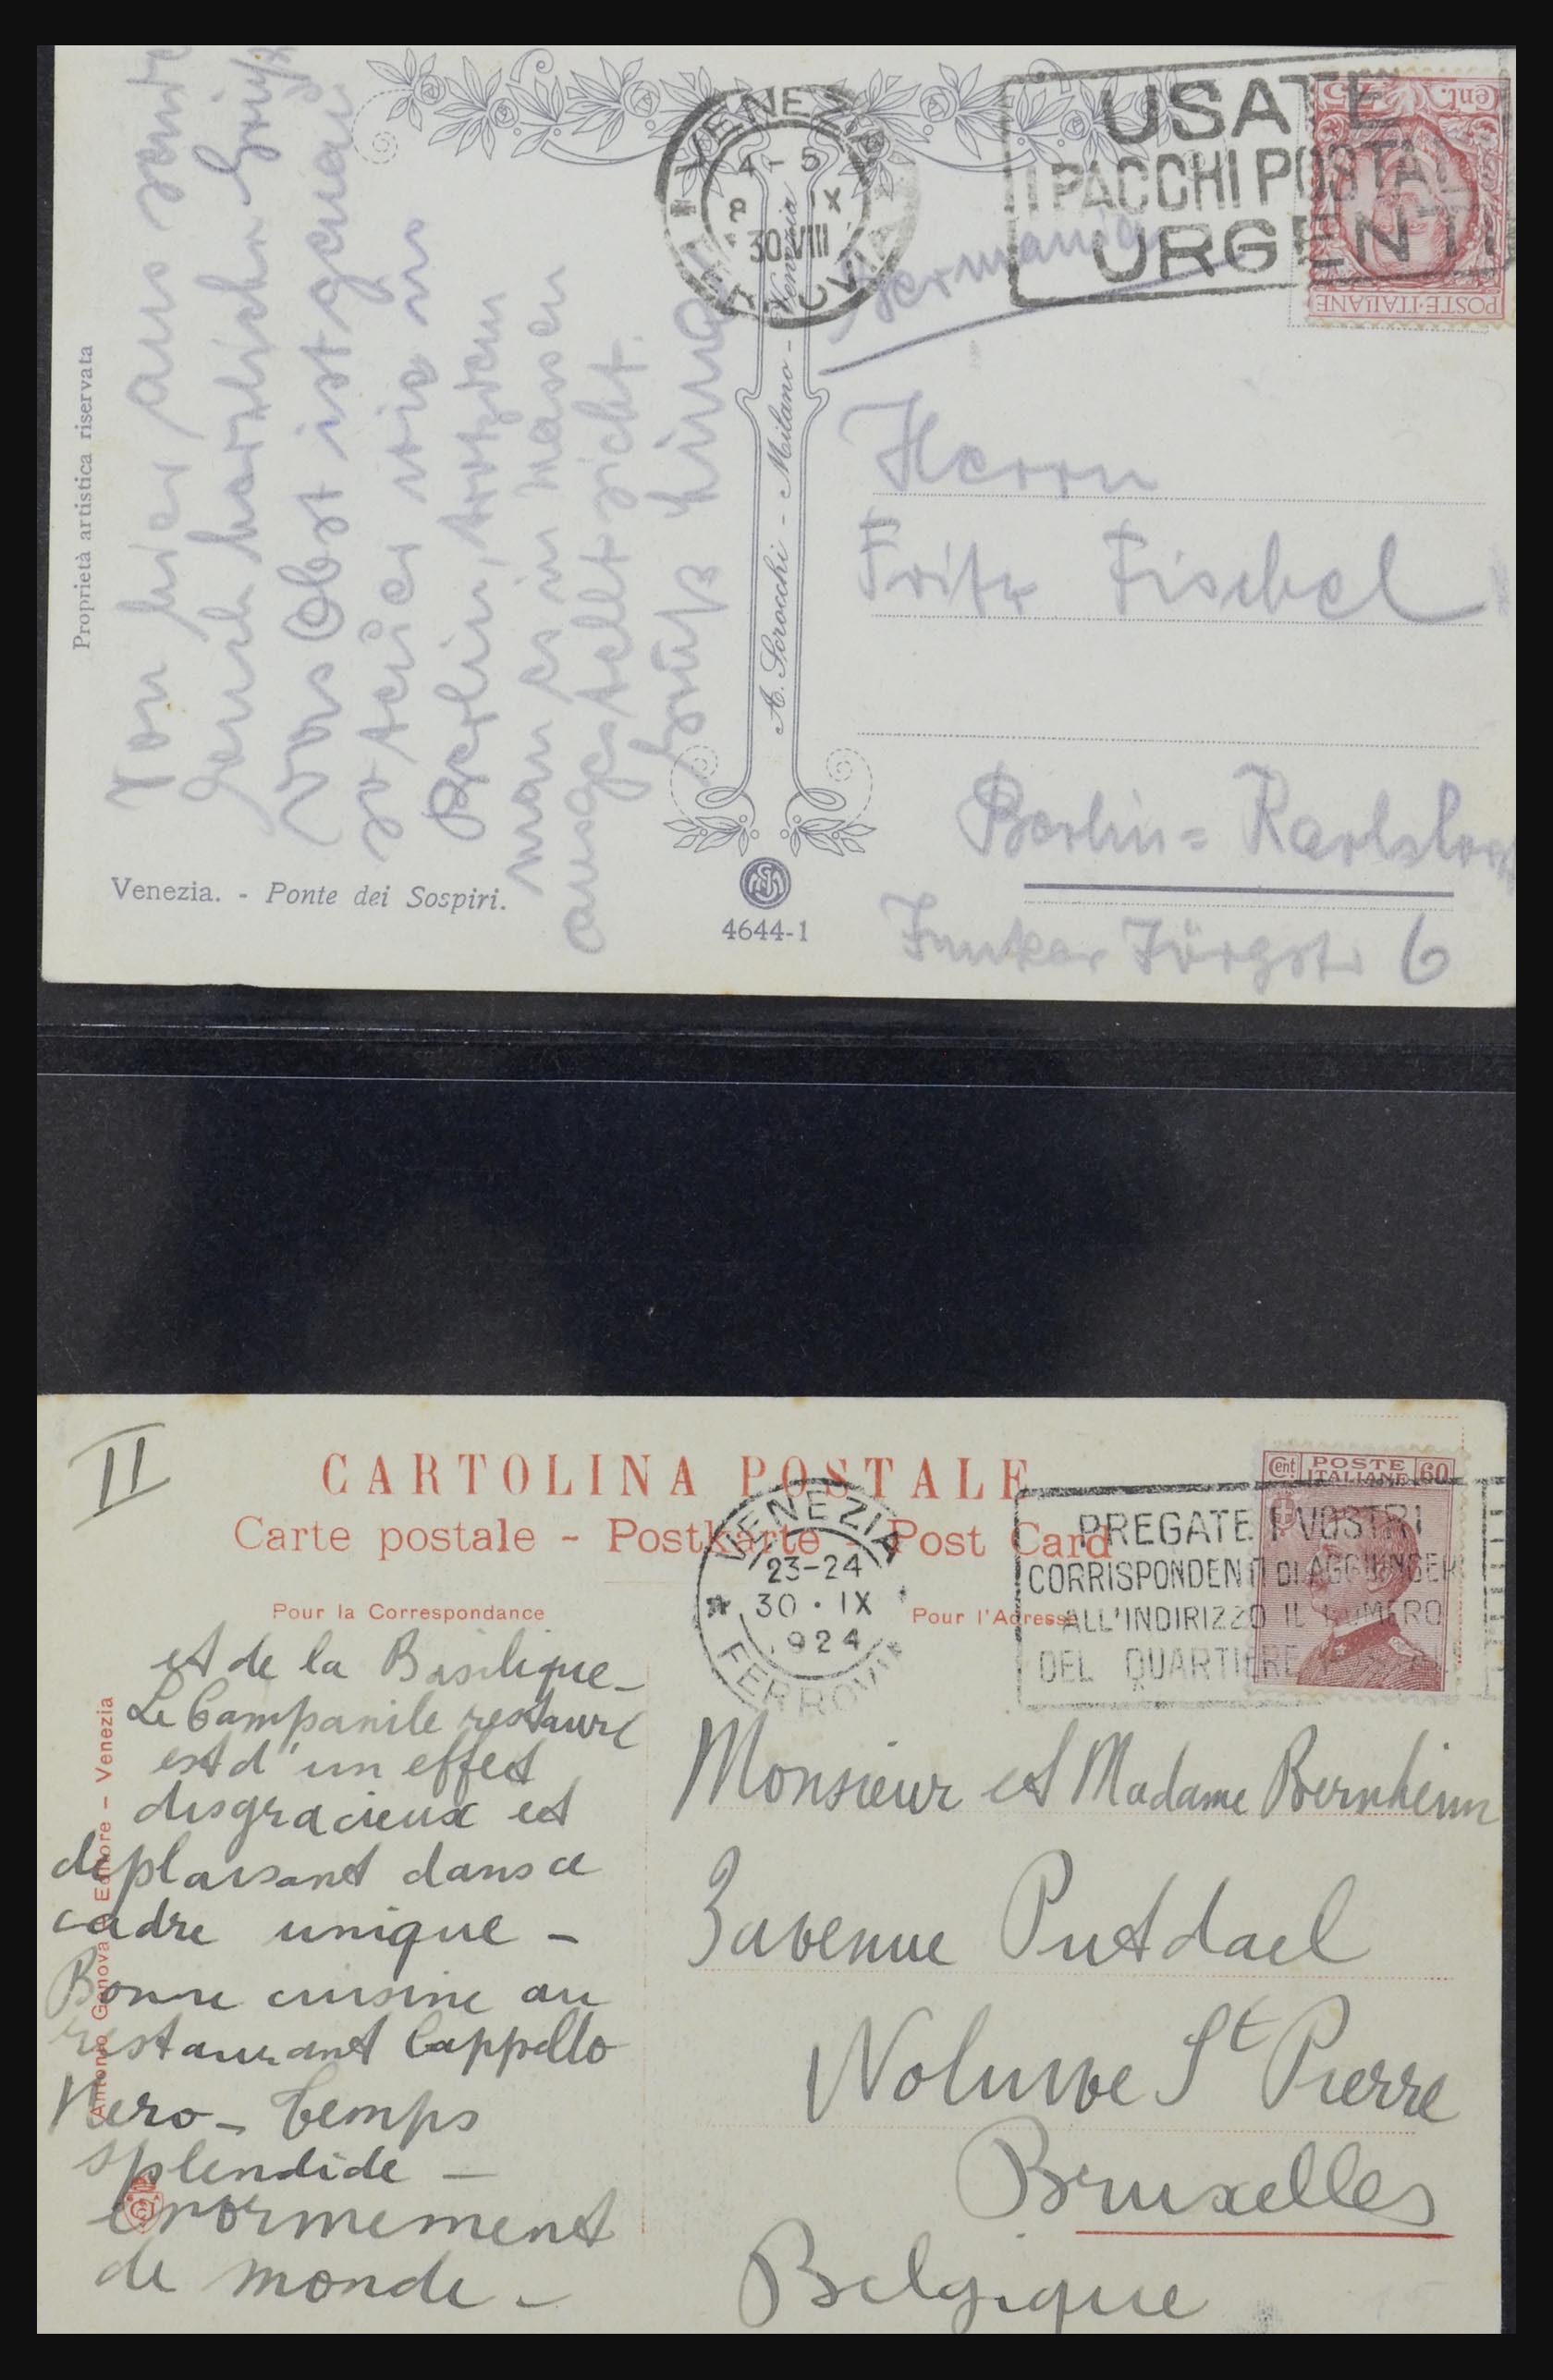 Proprietà artistica riservata
Von hier aus sende
herzliche Grüße
Das Obst ist genau
so teuer wie in
Berlin, trotzdem
man es in Massen
ausgestellt sieht.
Gruß
Venezia. - Ponte dei Sospiri.
A. Scrocchi - Milano - Venezia
4644-1
VENEZIA
4-5
30 VIII
FERROVIA
USATE
I PACCHI POSTALI
URGENTI
Cent. 75
POSTE·ITALIANE
Germania
Herrn
Fritz Fischel
Berlin=
Junker Jörgstr 6
II
CARTOLINA POSTALE
Carte postale - Postkarte - Post Card
Pour la Correspondance
Pour l'Adresse
VENEZIA
23-24
30·IX
924
FERROVIA
Cent POSTE ITALIANE 60
PREGATE I VOSTRI
CORRISPONDENTI DI AGGIUNGER
ALL'INDIRIZZO IL NUMERO
DEL QUARTIERE
et de la Basilique_
Le Campanile restauré
est d'un effet
disgracieux et
déplaisant dans ce
cadre unique -
Bonne cuisine au
restaurant Cappello
Nero - Temps
splendide -
énormement
de monde -
Antonio Genova Editore - Venezia
Monsieur et Madame Bernheim
3 avenue Putdael
Woluwe St Pierre
Bruxelles
Belgique